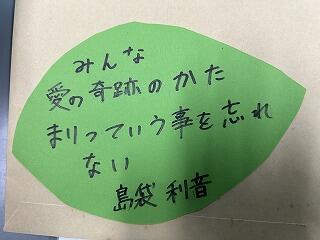 みんな
愛の奇跡のかた
まりっていう事を忘れ
ない
島袋 利音